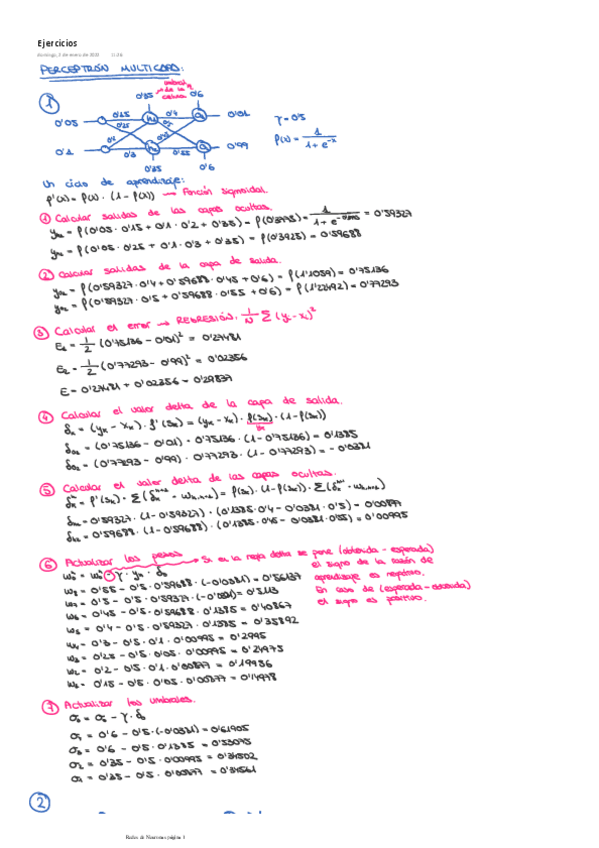 Ejercicios
domingo, 2 de enero de 2022
PERCEPTRÓN MULTICAPA:
umbral de la célula
1
0'35 0'6
0'05 0'15 0'4 0'01
0'25
0'1 0'3 0'55 0'99
0'35 0'6
γ = 0'5
f(x) = 1 / (1 + e^-x)
Un ciclo de aprendizaje:
f'(x) = f(x) · (1 - f(x)) → Función sigmoidal.
1 Calcular salidas de las capas ocultas.
= f(0'05 · 0'15 + 0'1 · 0'2 + 0'35) = f(0'3775) = = 0'59327
= f(0'05 · 0'25 + 0'1 · 0'3 + 0'35) = f(0'3925) = 0'59688
2 Calcular salidas de la capa de salida.
= f(0'59327 · 0'4 + 0'59688 · 0'45 + 0'6) = f(1'1059) = 0'75136
= f(0'59327 · 0'5 + 0'59688 · 0'55 + 0'6) = f(1'22492) = 0'77293
3 Calcular el error → REGRESIÓN: 1/N Σ (y - x)²
E₁ = 1/2 (0'75136 - 0'01)² = 0'27481
E₂ = 1/2 (0'77293 - 0'99)² = 0'02356
E = 0'27481 + 0'02356 = 0'29837
4 Calcular el valor delta de la capa de salida.
= (0'75136 - 0'01) · 0'75136 · (1 - 0'75136) = 0'1385
= (0'77293 - 0'99) · 0'77293 · (1 - 0'77293) = - 0'0381
5 Calcular el valor delta de las capas ocultas.
= 0'59327 · (1 - 0'59327) · (0'1385 · 0'4 - 0'0381 · 0'5) = 0'00877
= 0'59688 · (1 - 0'59688) · (0'1385 · 0'45 - 0'0381 · 0'55) = 0'00995
6 Actualizar los pesos → Si en la regla delta se pone (obtenida - esperada)
el signo de la razón de
aprendizaje es negativo.
En caso de (esperada - obtenida)
el signo es positivo.
= 0'55 - 0'5 · 0'59688 · (-0'0381) = 0'56137
= 0'5 - 0'5 · 0'59327 · (-0'0381) = 0'5113
= 0'45 - 0'5 · 0'59688 · 0'1385 = 0'40867
= 0'4 - 0'5 · 0'59327 · 0'1385 = 0'35892
= 0'3 - 0'5 · 0'1 · 0'00995 = 0'2995
= 0'25 - 0'5 · 0'05 · 0'00995 = 0'24975
= 0'2 - 0'5 · 0'1 · 0'00877 = 0'19956
= 0'15 - 0'5 · 0'05 · 0'00877 = 0'14978
7 Actualizar los umbrales.
= 0'6 - 0'5 · (-0'0381) = 0'61905
= 0'6 - 0'5 · 0'1385 = 0'53075
= 0'35 - 0'5 · 0'00995 = 0'34502
= 0'35 - 0'5 · 0'00877 = 0'34561
2
Redes de Neuronas página 1